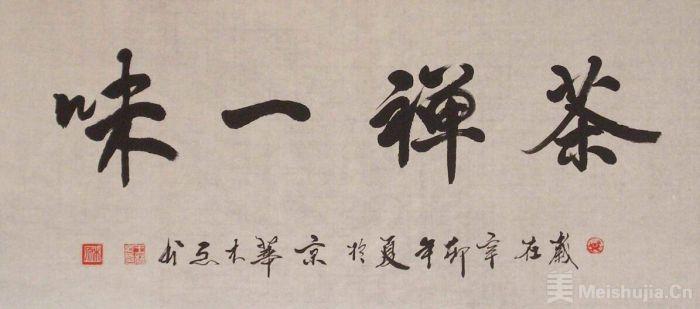 茶禅一味
岁在辛卯年夏於京华木易书
美 Meishujia.Cn